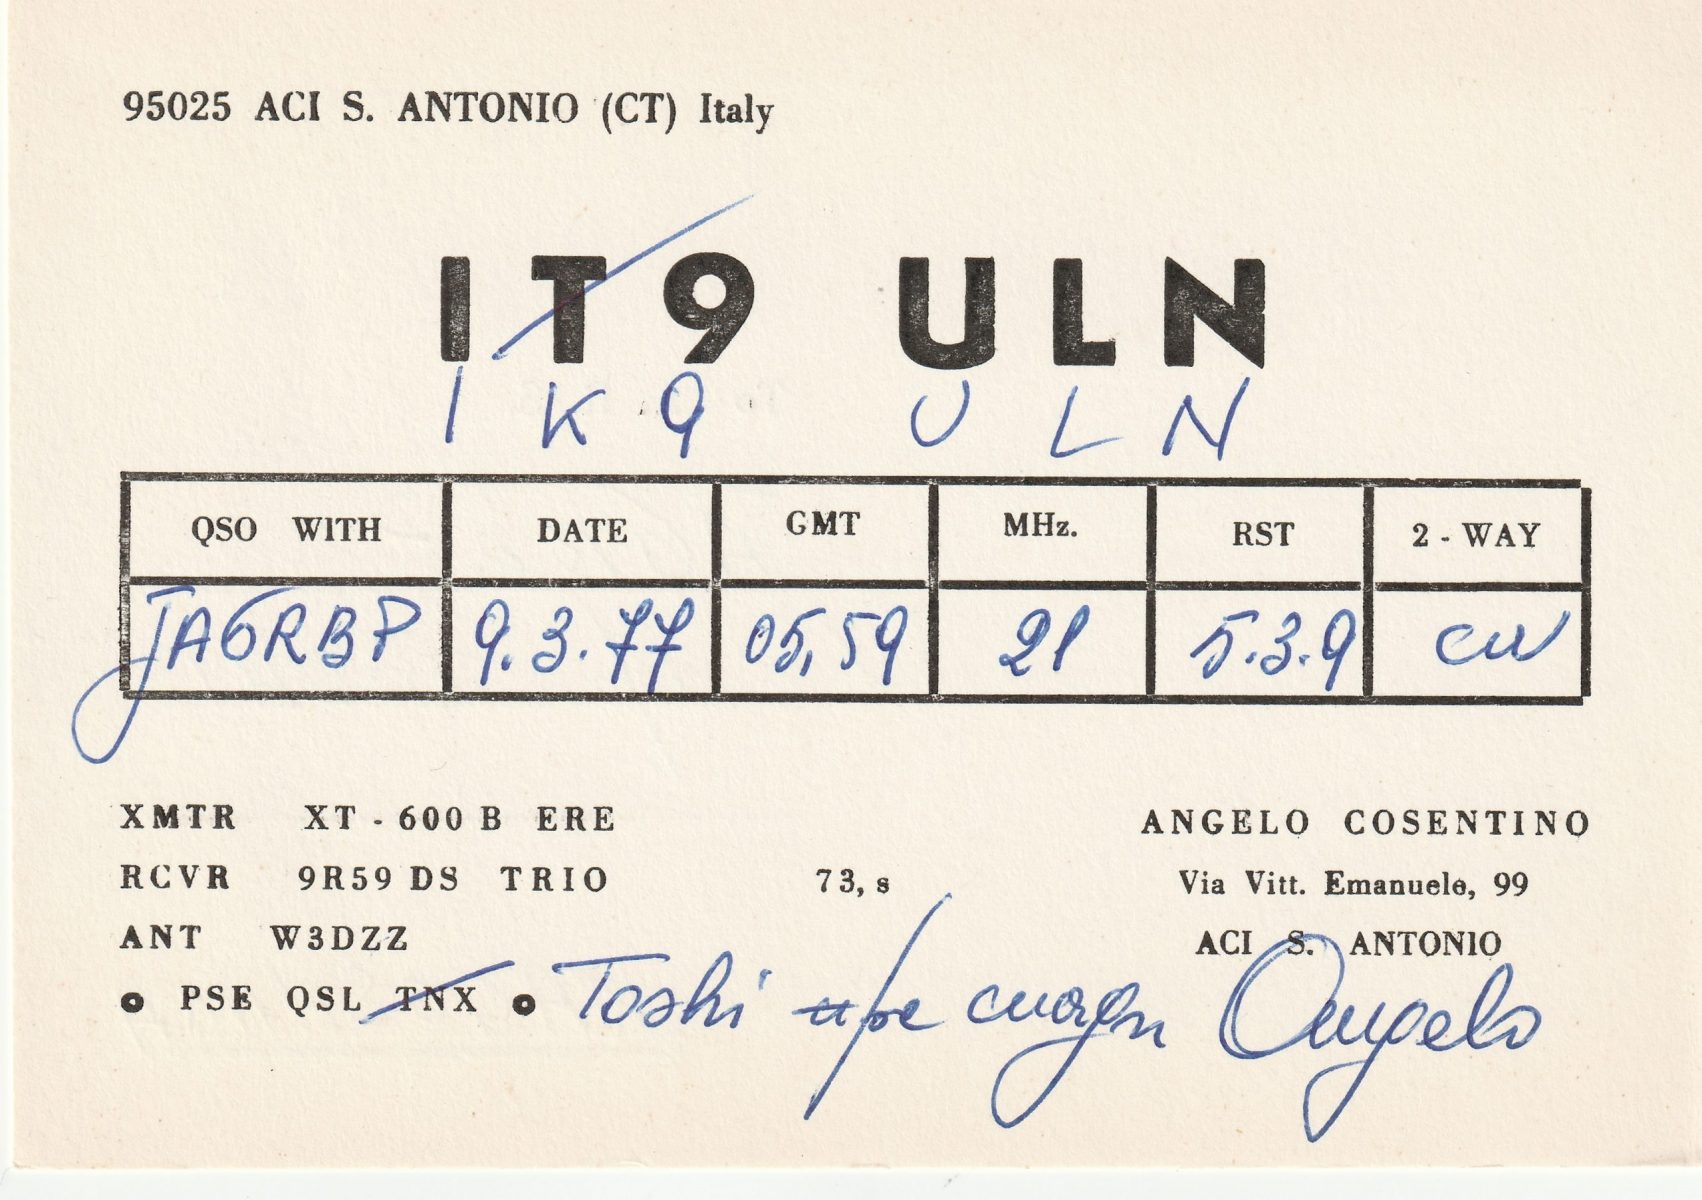 95025 ACI S. ANTONIO (CT) Italy
IT9 ULN
IK9 ULN
QSO WITH DATE GMT MHz. RST 2 - WAY
JA6RBP 9.3.77 05,59 21 5.3.9 CW
XMTR XT - 600 B ERE
RCVR 9R59 DS TRIO
ANT W3DZZ
● PSE QSL TNX ● Toshi
73, s
ANGELO COSENTINO
Via Vitt. Emanuele, 99
ACI S. ANTONIO
Angelo